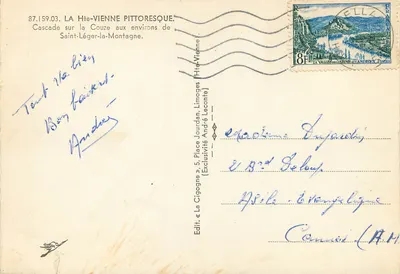 87.159.03. LA Hte-VIENNE PITTORESQUE.
Cascade sur la Couze aux environs de
Saint-Léger-la-Montagne.
Tout va bien
Bon baisers
André
Edit. « La Cigogne », 5, Place Jourdan, Limoges (Hte-Vienne)
(Exclusivité André Leconte)
8F
Madame Dujardin
2 Bd
Asile Evangélique
Cannes (A.M